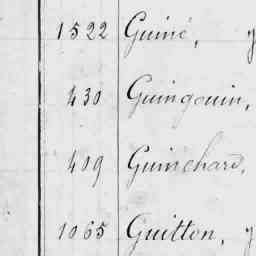 1522 Guiné, y
430 Guingouin,
409 Guinchard,
1065 Guitton, y